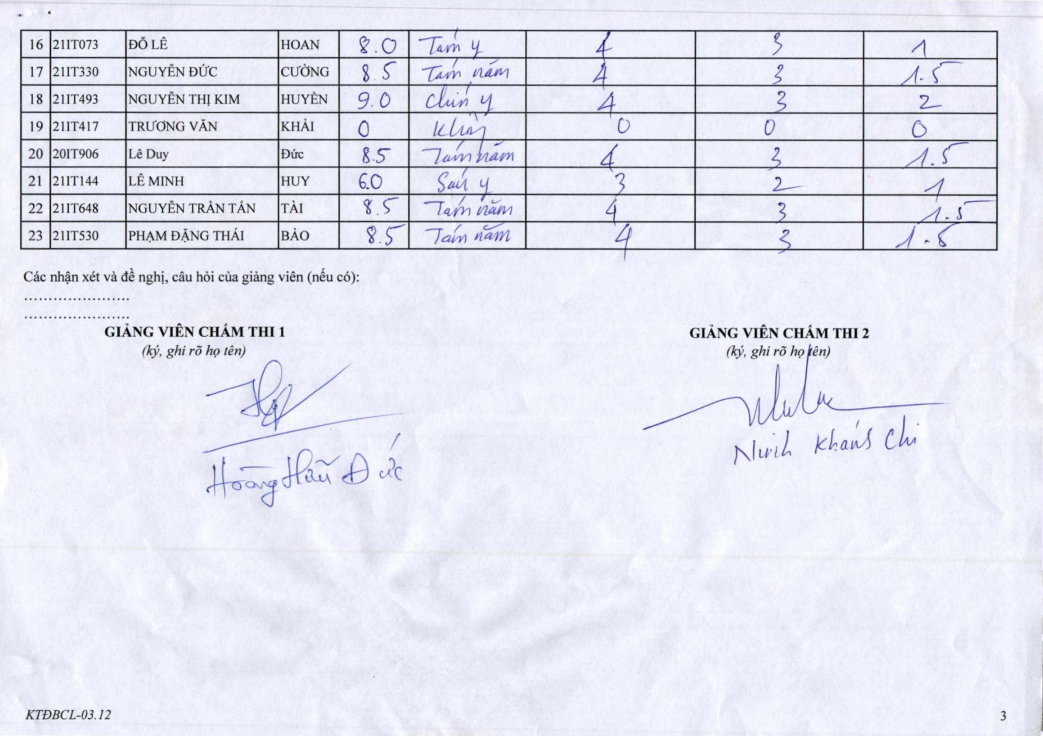 16 21IT073 ĐỖ LÊ HOAN 8.0 Tám y 4 3 1
17 21IT330 NGUYỄN ĐỨC CƯỜNG 8.5 Tám năm 4 3 1.5
18 21IT493 NGUYỄN THỊ KIM HUYỀN 9.0 chín y 4 3 2
19 21IT417 TRƯƠNG VĂN KHẢI 0 0 0 0
20 20IT906 Lê Duy Đức 8.5 Tám năm 4 3 1.5
21 21IT144 LÊ MINH HUY 6.0 Sáu y 3 2 1
22 21IT648 NGUYỄN TRẦN TẤN TÀI 8.5 Tám năm 4 3 1.5
23 21IT530 PHẠM ĐẶNG THÁI BẢO 8.5 Tám năm 4 3 1.5
Các nhận xét và đề nghị, câu hỏi của giảng viên (nếu có):
........................
........................
GIẢNG VIÊN CHẤM THI 1 GIẢNG VIÊN CHẤM THI 2
(ký, ghi rõ họ tên) (ký, ghi rõ họ tên)
Hoàng Hữu Đức
Khánh Chi
KTĐBCL-03.12 3